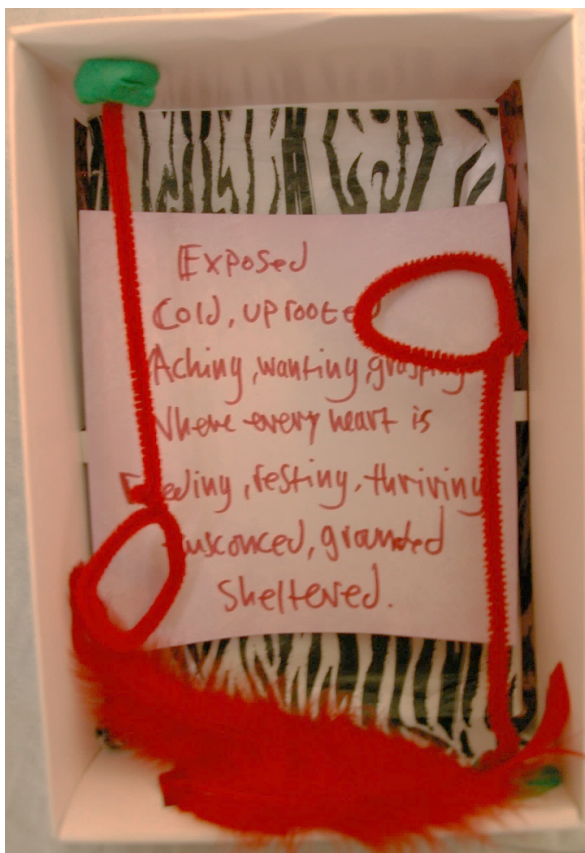 Exposed
Cold, uprooted
Aching, wanting, grasping
Where every heart is
Feeding, resting, thriving
ensconced, grounded
Sheltered.